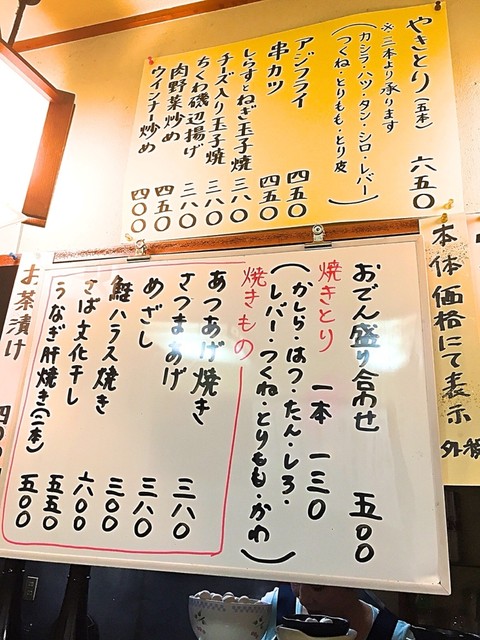 やきとり(五本) 六五〇
※二本より承ります
(カシラ・ハツ・タン・シロ・レバー
つくね・とりもも・とり皮)
アジフライ 四五〇
串カツ 四五〇
しらすとねぎ玉子焼 三八〇
チーズ入り玉子焼 三八〇
ちくわ磯辺揚げ 三八〇
肉野菜炒め 四五〇
ウインナー炒め 四〇〇
本体価格にて表示
おでん盛り合わせ 五〇〇
焼きとり 一本 一三〇
(かしら・はつ・たん・しろ・
レバー・つくね・とりもも・かわ)
焼きもの
あつあげ焼き 三八〇
さつまあげ 三八〇
めざし 三〇〇
鮭ハラス焼き 六〇〇
さば文化干し 五五〇
うなぎ肝焼き(一本) 五〇〇
お茶漬け